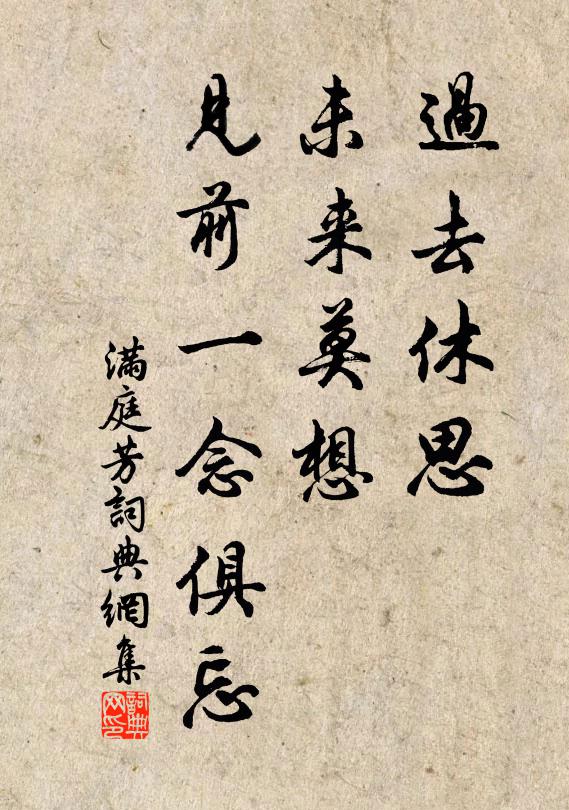 過去休思
未来莫想
見前一念俱忘
满庭芳詞典網集
詞典
网印